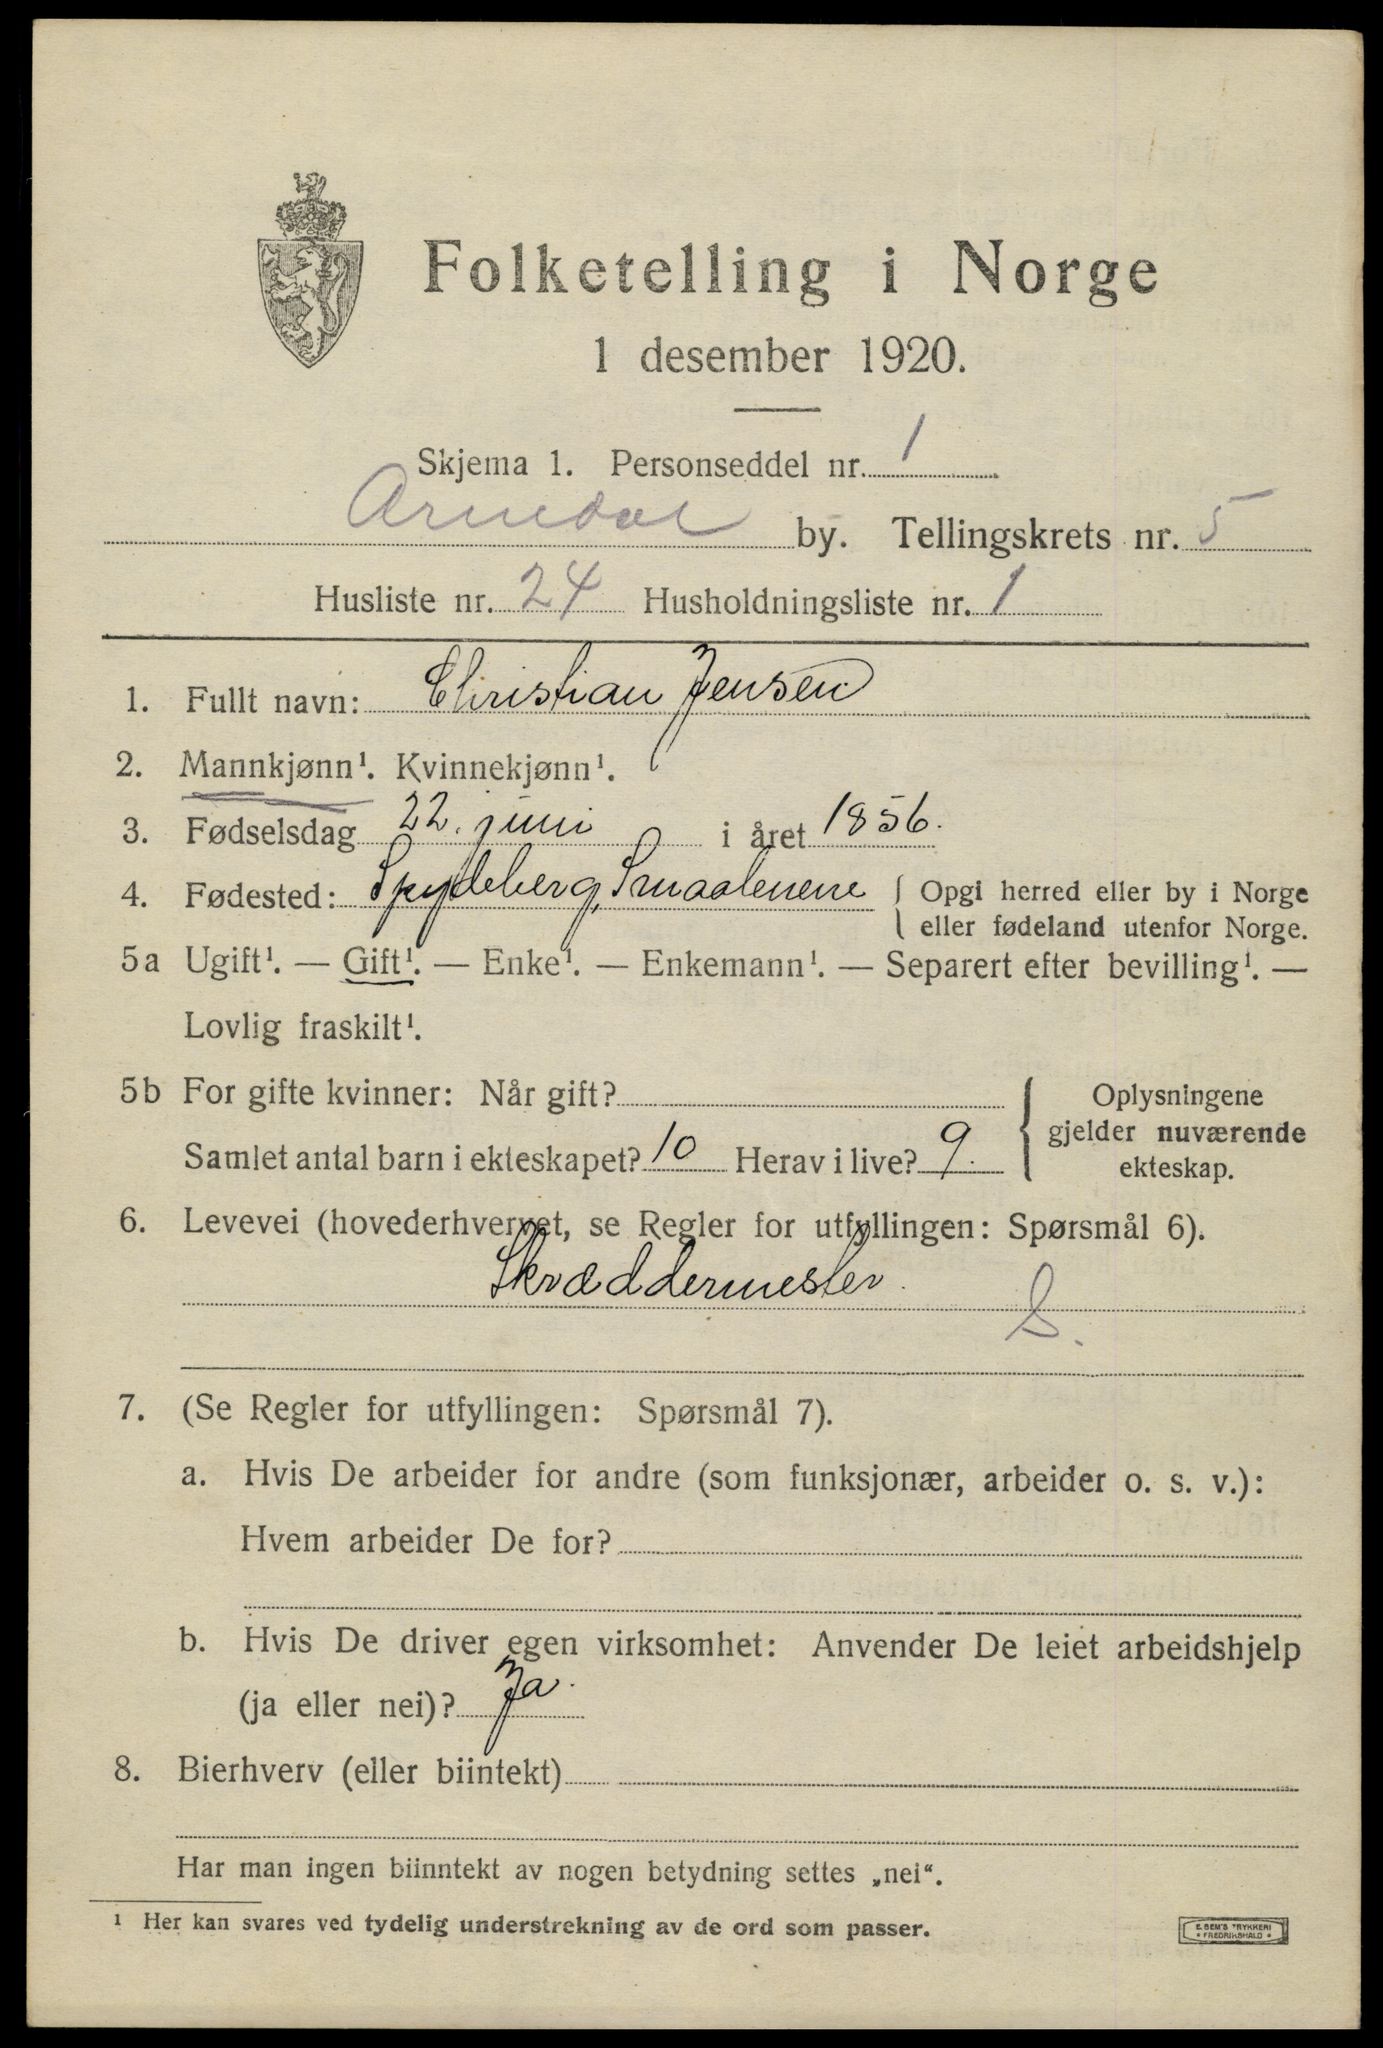 Folketelling i Norge
1 desember 1920.
Skjema 1. Personseddel nr. 1
Arendal by. Tellingskrets nr. 5
Husliste nr. 24 Husholdningsliste nr. 1
1. Fullt navn: Christian Jensen
2. Mannkjønn¹. Kvinnekjønn¹.
3. Fødselsdag 22. juni i året 1856.
4. Fødested: Spydeberg, Smaalenene { Opgi herred eller by i Norge
eller fødeland utenfor Norge.
5a Ugift¹. — Gift¹. — Enke¹. — Enkemann¹. — Separert efter bevilling¹. —
Lovlig fraskilt¹.
5b For gifte kvinner: Når gift? { Oplysningene
gjelder nuværende
Samlet antal barn i ekteskapet? 10 Herav i live? 9. ekteskap.
6. Levevei (hovederhvervet, se Regler for utfyllingen: Spørsmål 6).
Skræddermester.
S.
7. (Se Regler for utfyllingen: Spørsmål 7).
a. Hvis De arbeider for andre (som funksjonær, arbeider o. s. v.):
Hvem arbeider De for?
b. Hvis De driver egen virksomhet: Anvender De leiet arbeidshjelp
(ja eller nei)? Ja.
8. Bierhverv (eller biintekt)
Har man ingen biinntekt av nogen betydning settes „nei“.
¹ Her kan svares ved tydelig understrekning av de ord som passer.
E. SEM'S TRYKKERI
* FREDRIKSHALD *